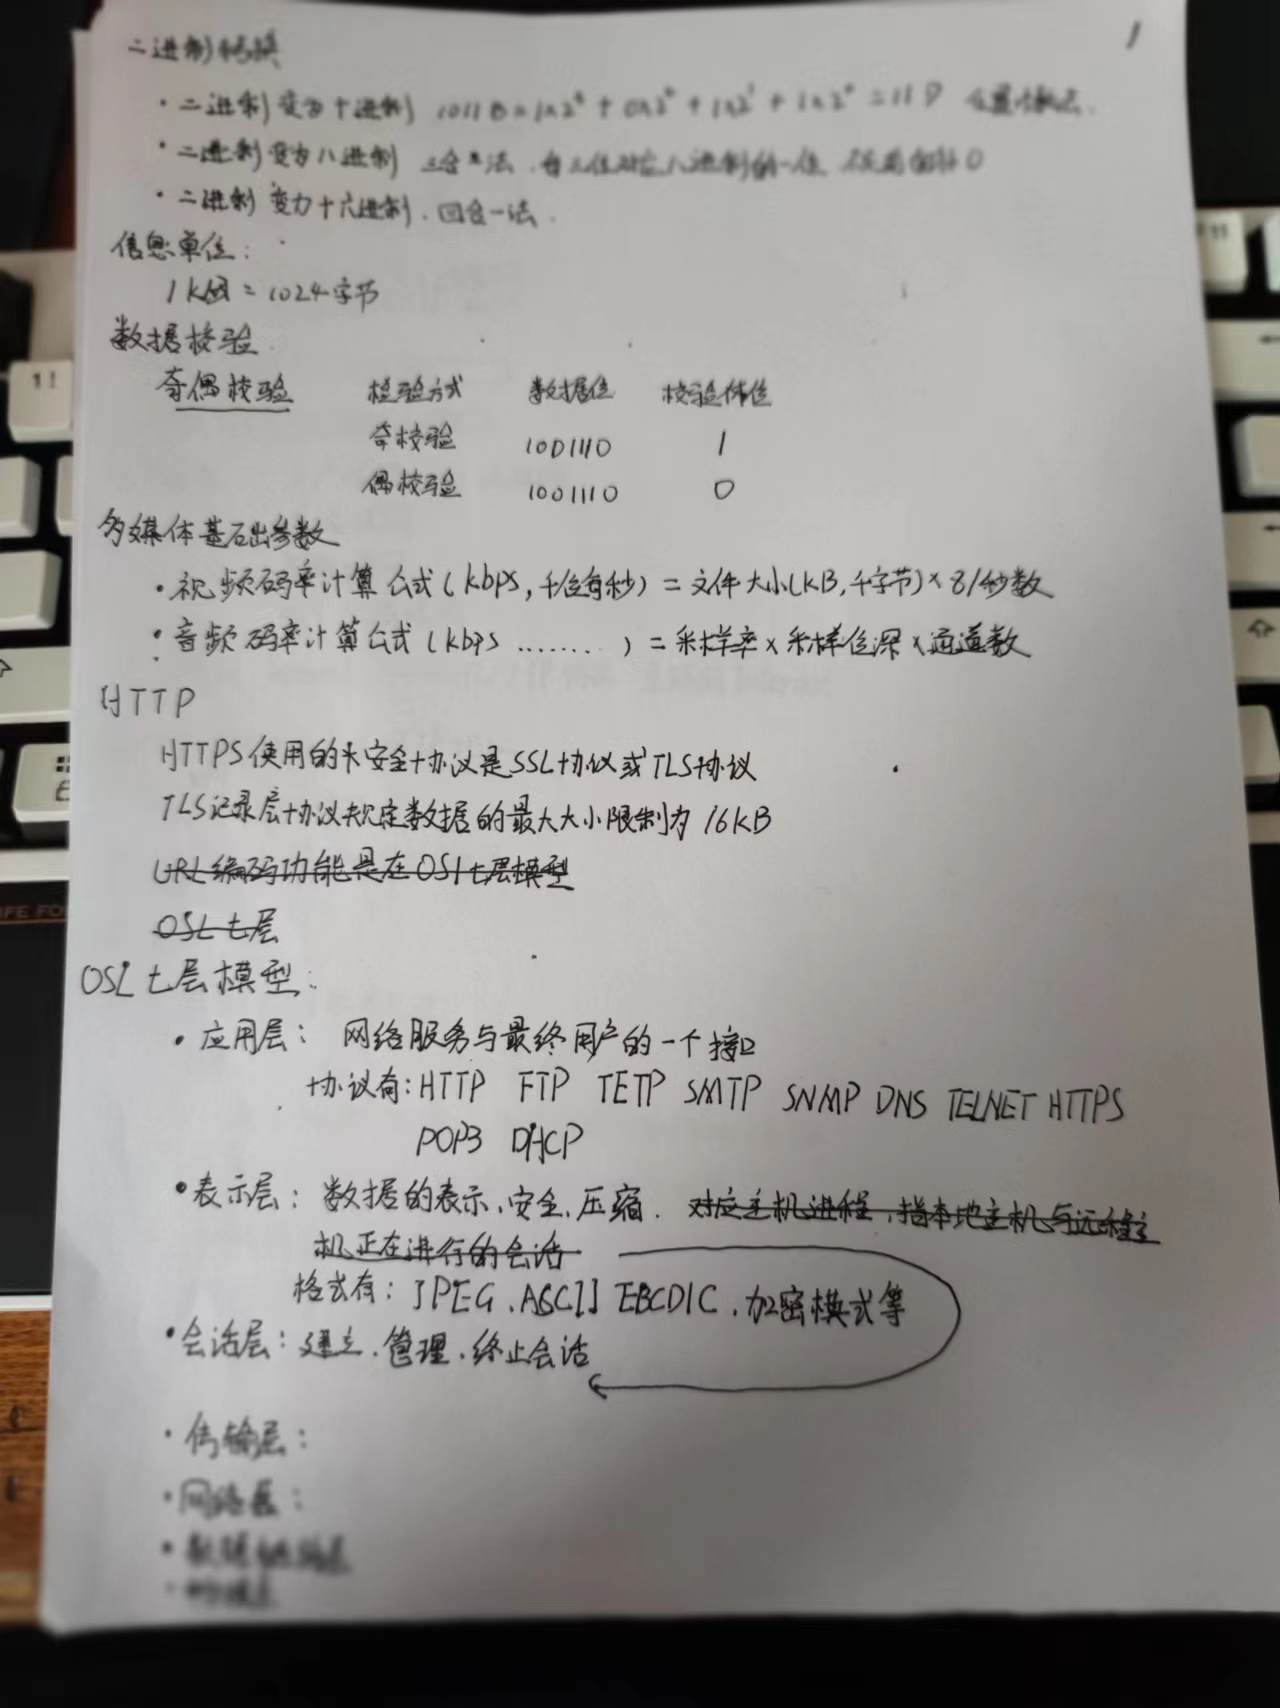 1
二进制转换
· 二进制变为十进制 1011B = 1x2 + 0x2 + 1x2¹ + 1x2⁰ = 11D
· 二进制变为八进制 三合一法，每三位对应八进制的一位，补0
· 二进制变为十六进制，四合一法.
信息单位：
1KB = 1024字节
数据校验
奇偶校验 检验方式 数据位 校验位
奇校验 1001110 1
偶校验 1001110 0
多媒体基础参数
· 视频码率计算公式(kbps,千位每秒) = 文件大小(KB,千字节) × 8/秒数
· 音频码率计算公式(kbps ........) = 采样率 × 采样位深 × 通道数
HTTP
HTTPS使用的安全协议是SSL协议或TLS协议
TLS记录层协议规定数据的最大大小限制为16KB
URL编码功能是在OSI七层模型
OSL七层
OSL七层模型：
· 应用层： 网络服务与最终用户的一个接口
协议有：HTTP FTP TETP SMTP SNMP DNS TELNET HTTPS
POP3 DHCP
· 表示层： 数据的表示、安全、压缩. 对应主机进程，指本地主机与远程主
机正在进行的会话
格式有：JPEG、ASCII EBCDIC、加密模式等
· 会话层：建立、管理、终止会话
· 传输层：
· 网络层：
· 数据链路层
· 物理层